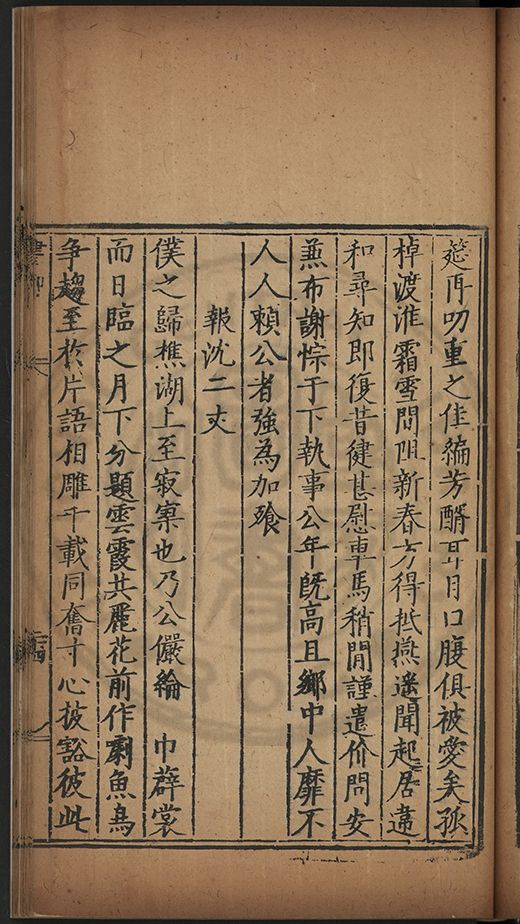 筵再叨重之佳編芳醑耳目口腹俱被愛矣孤
棹渡淮霜雪間阻新春方得抵燕遙聞起居違
和尋知即復昔健甚慰車馬稍閒謹遣价問安
兼布謝悰于下執事公年既高且鄉中人靡不
人人賴公者強為加飱
報沈二丈
僕之歸樵湖上至寂寞也乃公儼綸巾薜裳
而日臨之月下分題雲霞共麗花前作劇魚鳥
争趨至於片語相雕千載同奮寸心披豁彼此